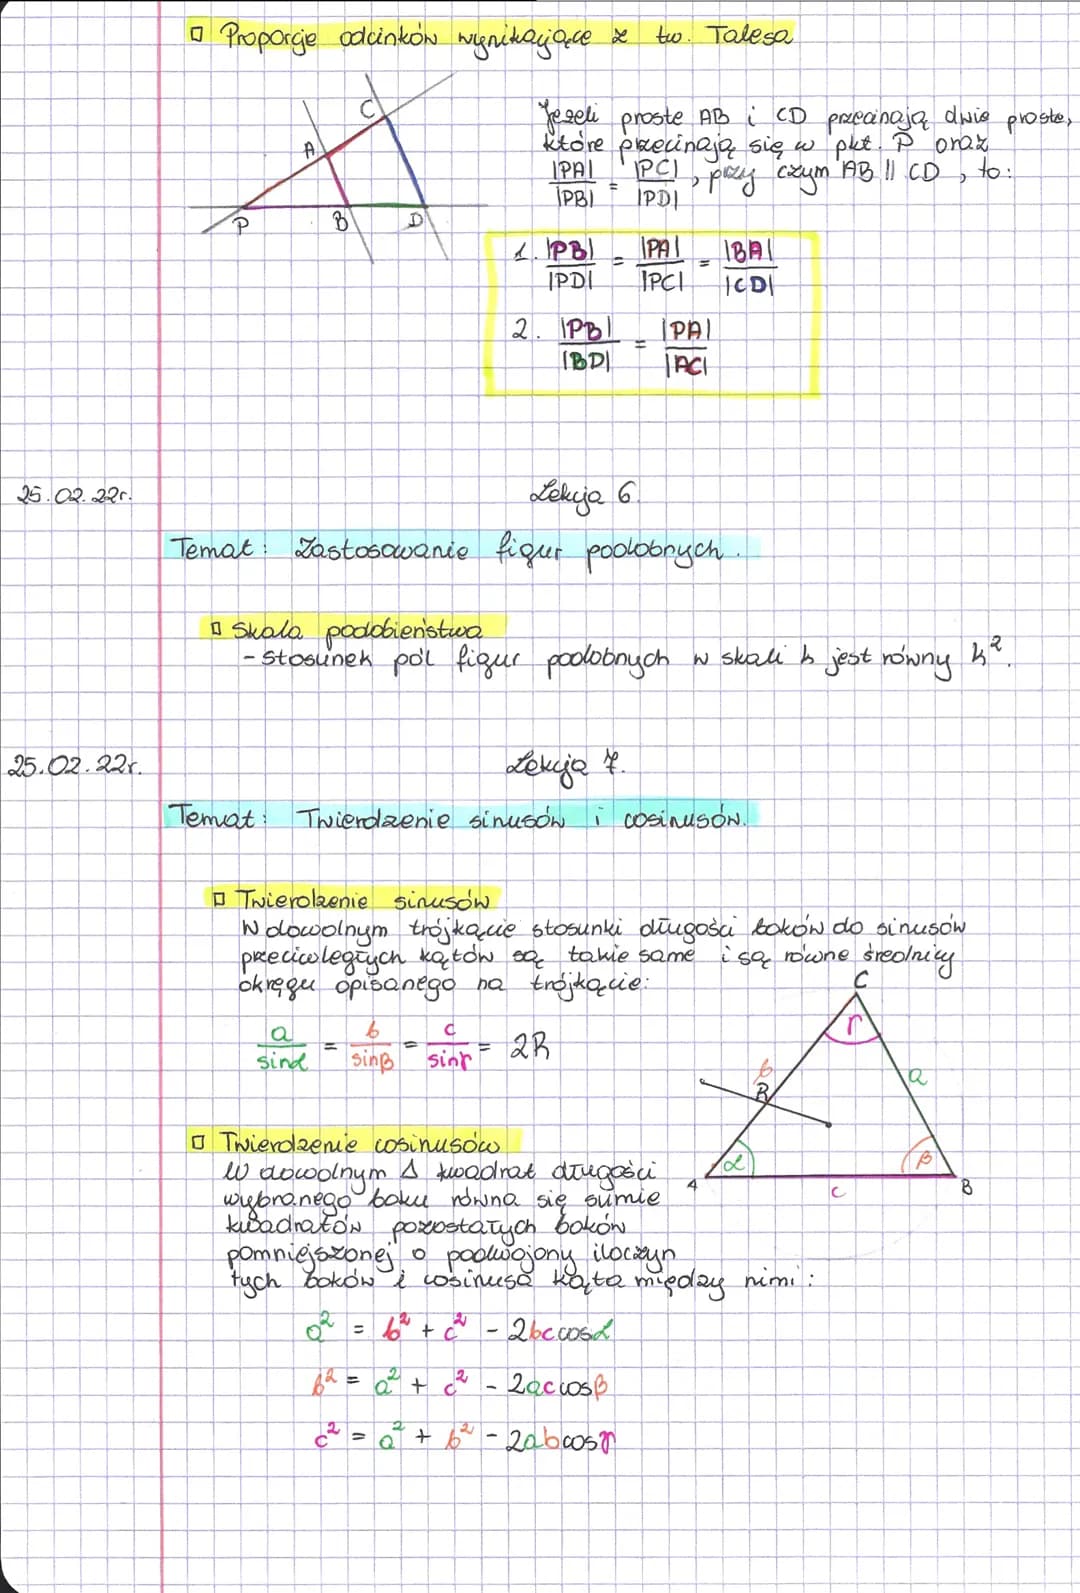 Proporcje odcinków wynikające z tw. Talesa
Jeżeli proste AB i CD przecinają dwie proste,
które przecinają się w pkt. P oraz
|PA|/|PB| = |PC|/|PD|, przy czym AB || CD, to:
C
A
P
B
D
1. |PB|/|PD| = |PA|/|PC| = |BA|/|CD|
2. |PB|/|BD| = |PA|/|AC|
25.02.22r.
Lekcja 6.
Temat: Zastosowanie figur podobnych.
Skala podobieństwa
- stosunek pól figur podobnych w skali k jest równy k².
25.02.22r.
Lekcja 7.
Temat: Twierdzenie sinusów i cosinusów.
Twierdzenie sinusów
W dowolnym trójkącie stosunki długości boków do sinusów
przeciwległych kątów są takie same i są równe średnicy
okręgu opisanego na trójkącie:
a/sinα = b/sinβ = c/sinγ = 2R
C
γ
b
a
R
α
β
A
c
B
Twierdzenie cosinusów
W dowolnym Δ kwadrat długości
wybranego boku równa się sumie
kwadratów pozostałych boków
pomniejszonej o podwojony iloczyn
tych boków i cosinusa kąta między nimi:
a² = b² + c² - 2bccosα
b² = a² + c² - 2accosβ
c² = a² + b² - 2abcosγ